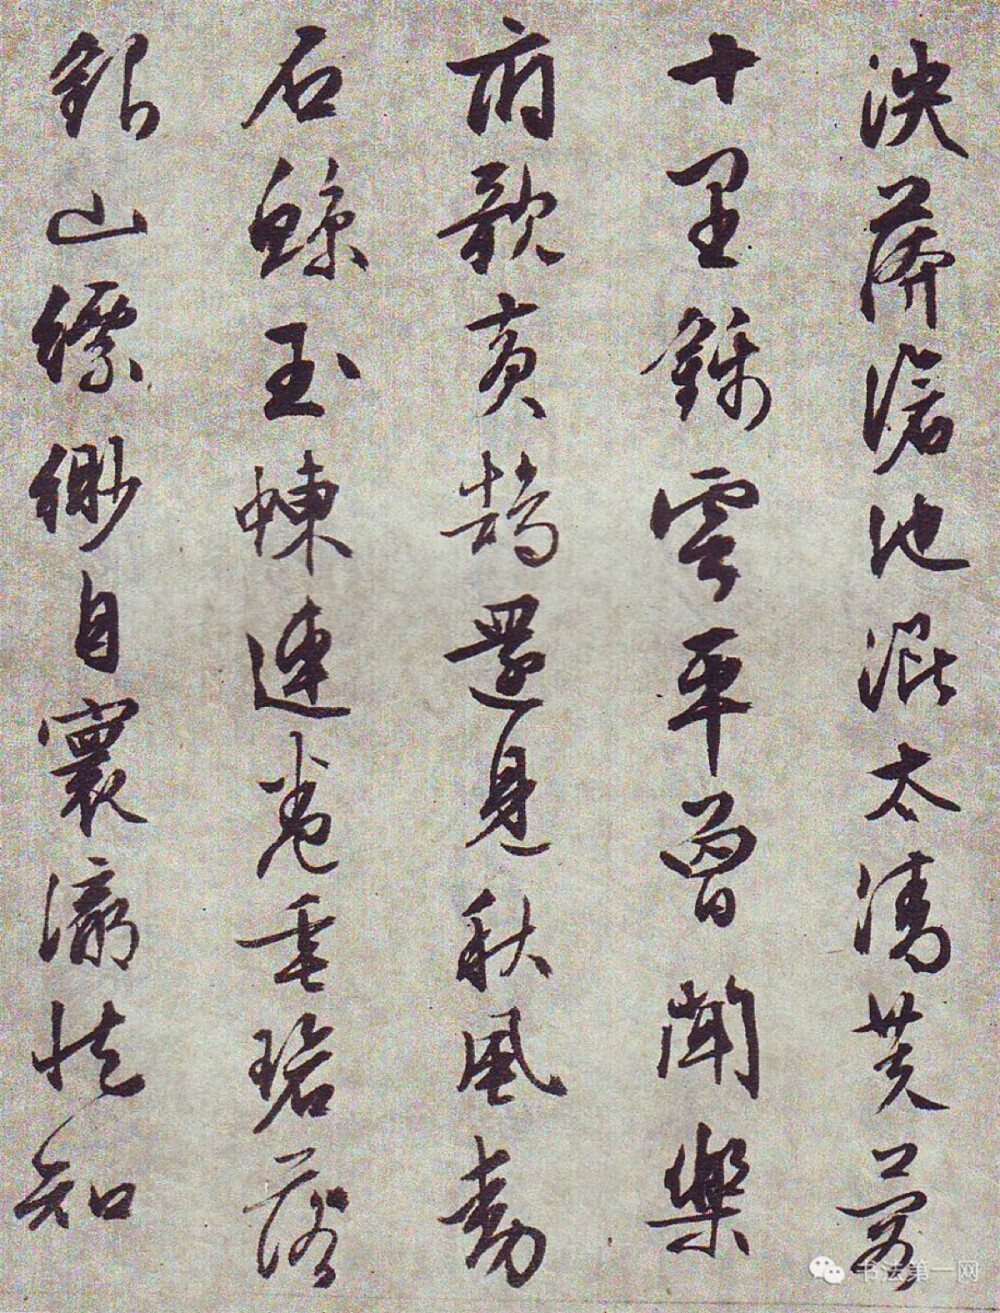 泱漭滄池混太清芙蓉
十里錦雲平曾聞樂
府歌黃鵠還見秋風動
石鯨玉蝀連蜷垂碧落
銀山縹緲自寰瀛從知
书法第一网